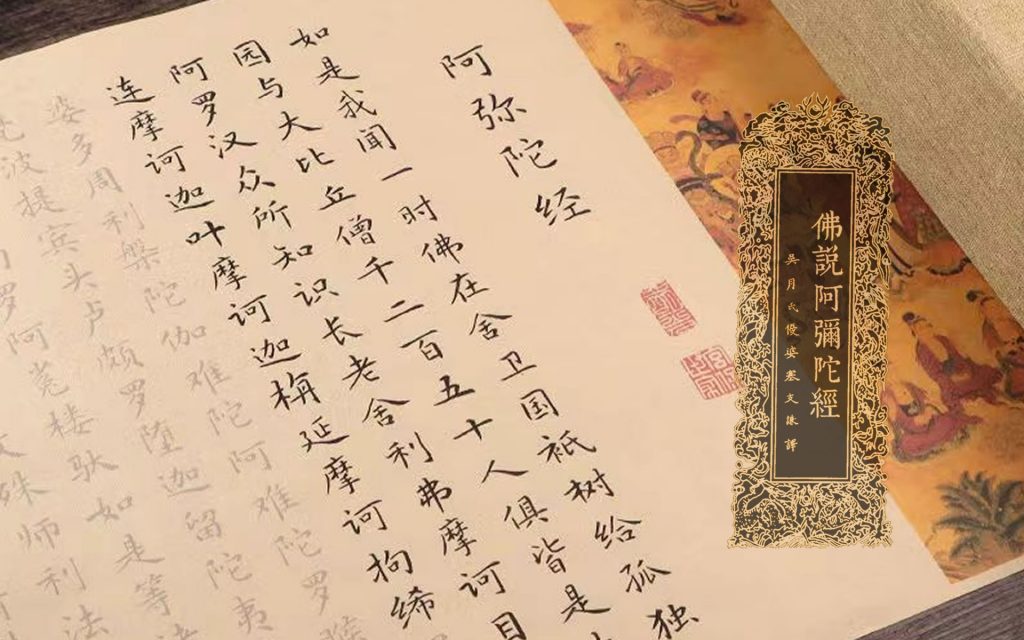 佛説阿彌陀經
吳月氏優婆塞支謙譯
阿弥陀经
如是我闻一时佛在舍卫国祇树给孤独
园与大比丘僧千二百五十人俱皆是
阿罗汉众所知识长老舍利弗摩诃目
连摩诃迦叶摩诃迦栴延摩诃拘絺
婆多周利槃陀伽难陀阿难陀罗睺
梵波提宾头卢颇罗堕迦留陀夷
罗阿㝹楼驮如是等诸
殊师利法